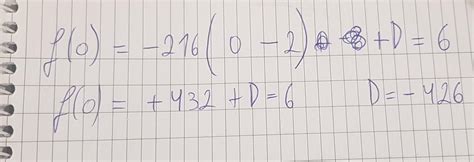 f(0) = -216( 0 - 2) +D = 6
f(0) = +432 +D = 6 D = -426